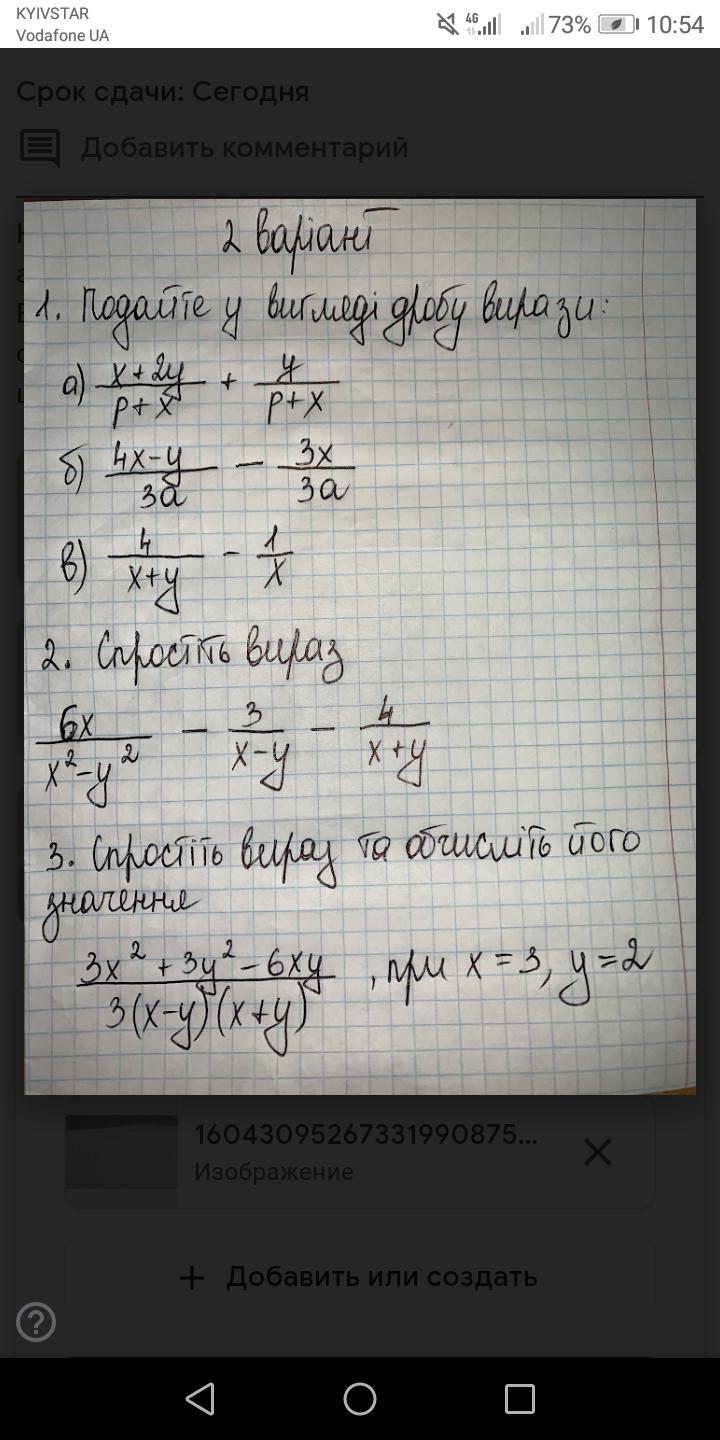 KYIVSTAR
Vodafone UA
4G
73%
10:54
Срок сдачи: Сегодня
Добавить комментарий
2 варіант
1. Подайте у вигляді дробу вирази:
а) (x+2y)/(p+x) + y/(p+x)
б) (4x-y)/(3a) - 3x/(3a)
в) 4/(x+y) - 1/x
2. Спростіть вираз
6x/(x²-y²) - 3/(x-y) - 4/(x+y)
3. Спростіть вираз та обчисліть його
значення
(3x²+3y²-6xy)/(3(x-y)(x+y)), при x=3, y=2
16043095267331990875...
Изображение
+ Добавить или создать
?